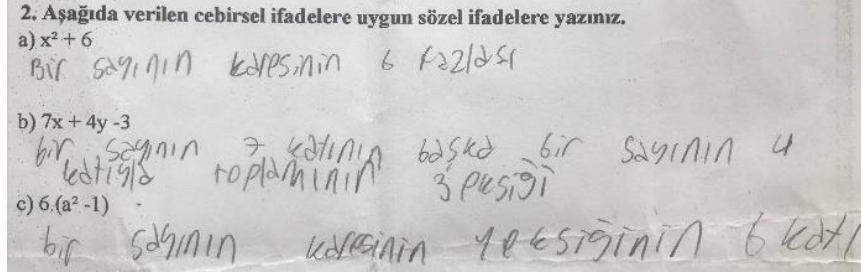 2. Aşağıda verilen cebirsel ifadelere uygun sözel ifadelere yazınız.
a) x² + 6
Bir sayının karesinin 6 fazlası
b) 7x + 4y -3
bir sayının 7 katının başka bir sayının 4
katıyla toplamının 3 eksiği
c) 6.(a² -1)
bir sayının karesinin 1 eksiğinin 6 katı